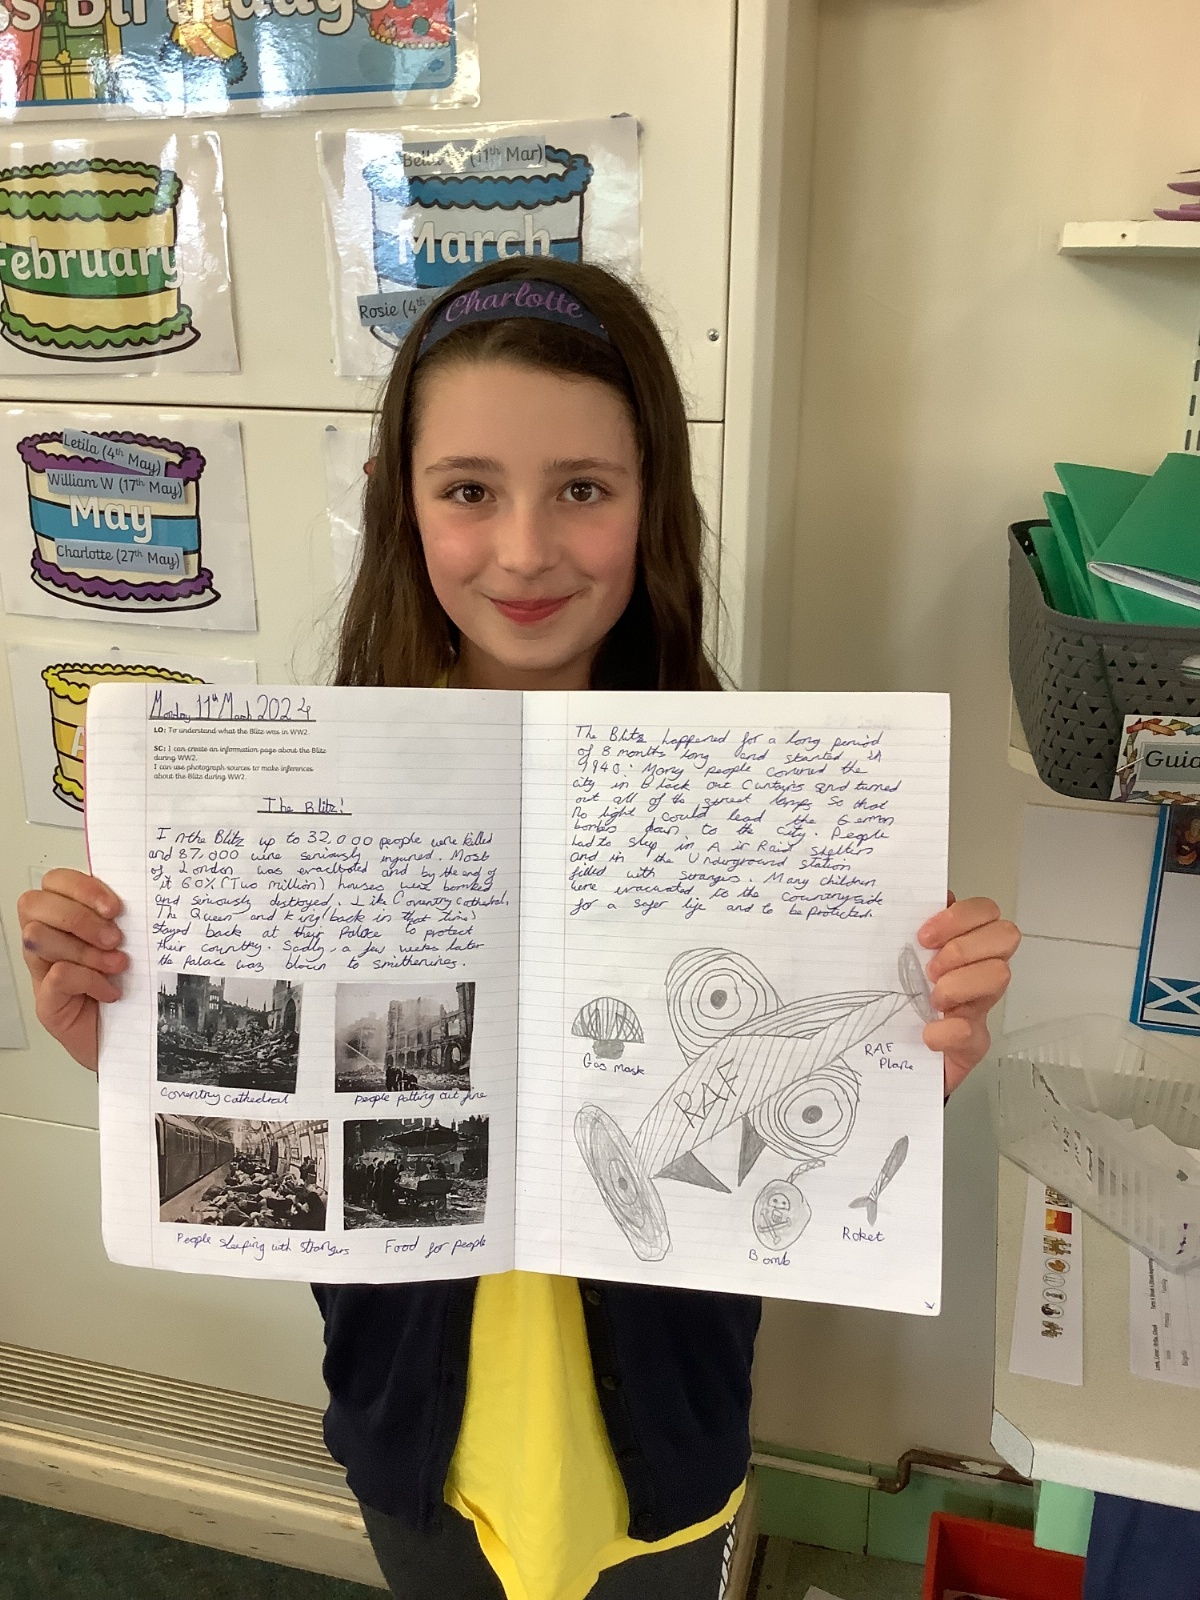 s Birthdays
February
Bella (11th Mar)
March
Rosie (4th
Charlotte
Letila (4th May)
William W (17th May)
May
Charlotte (27th May)
A
Guid
Monday 11th March 2024
LO: To understand what the Blitz was in WW2.
SC: I can create an information page about the Blitz
during WW2.
I can use photograph sources to make inferences
about the Blitz during WW2.
The Blitz!
In the Blitz up to 32,000 people were killed
and 87,000 were seriously ingured. Most
of London was evacuated and by the end of
it 60% (Two million) houses were bombed
and seriously destroyed. Like Coventry cathedral.
The Queen and king (back in that time)
stayed back at their Palace to protect
their country. Sadly, a few weeks later
the palace was blown to smitherings.
Coventry cathedral
People putting out fire
People sleeping with strangers
Food for people
The Blitz happened for a long period
of 8 months long and started in
1940. Many people covered the
city in Black out Curtains and turned
out all of the street lamps so that
no light could lead the German
bombers down to the city. People
had to sleep in Air Raid shelters
and in the Underground station
filled with strangers. Many children
were evacuated to the countryside
for a safer life and to be protected.
Gas mask
RAF
RAF
Plane
Bomb
Roket